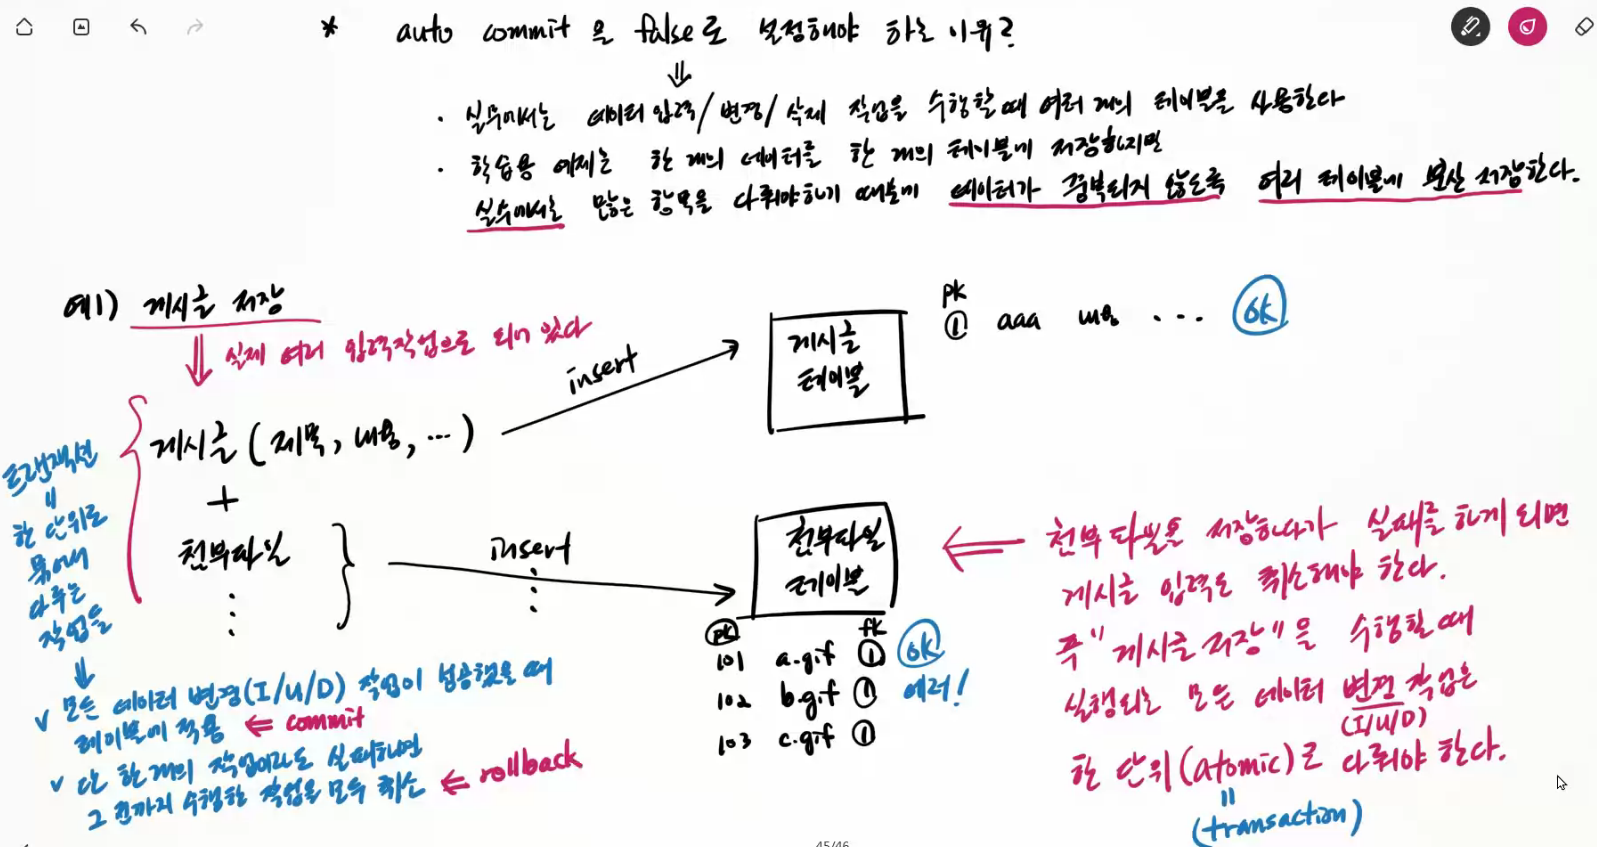 * auto commit 을 false로 설정해야 하는 이유?
⇓
· 실무에서는 데이터 입력/변경/삭제 작업을 수행할 때 여러 개의 테이블을 사용한다
· 학습용 예제는 한 개의 데이터를 한 개의 테이블에 저장하지만
실무에서는 많은 항목을 다뤄야하기 때문에 데이터가 중복되지 않도록 여러 테이블에 분산 저장한다.
예1) 게시글 저장
⇓ 실제 여러 입력작업으로 되어 있다
게시글 (제목, 내용, …)
+
첨부파일
⋮
insert
게시글
테이블
pk
① aaa 내용 ... OK
insert
⋮
첨부파일
테이블
pk fk
101 a.gif ① OK
102 b.gif ① 에러!
103 c.gif ①
⇐ 첨부파일을 저장하다가 실패를 하게 되면
게시글 입력도 취소해야 한다.
즉 "게시글 저장"을 수행할 때
실행되는 모든 데이터 변경 작업은
(I/U/D)
한 단위(atomic)로 다뤄야 한다.
=
(transaction)
트랜잭션
=
한 단위로
묶어서
다루는
작업들
⇓
✓ 모든 데이터 변경(I/U/D) 작업이 성공했을 때
테이블에 적용 ⇐ commit
✓ 단 한개의 작업이라도 실패하면
그 전까지 수행한 작업을 모두 취소 ⇐ rollback
45/46